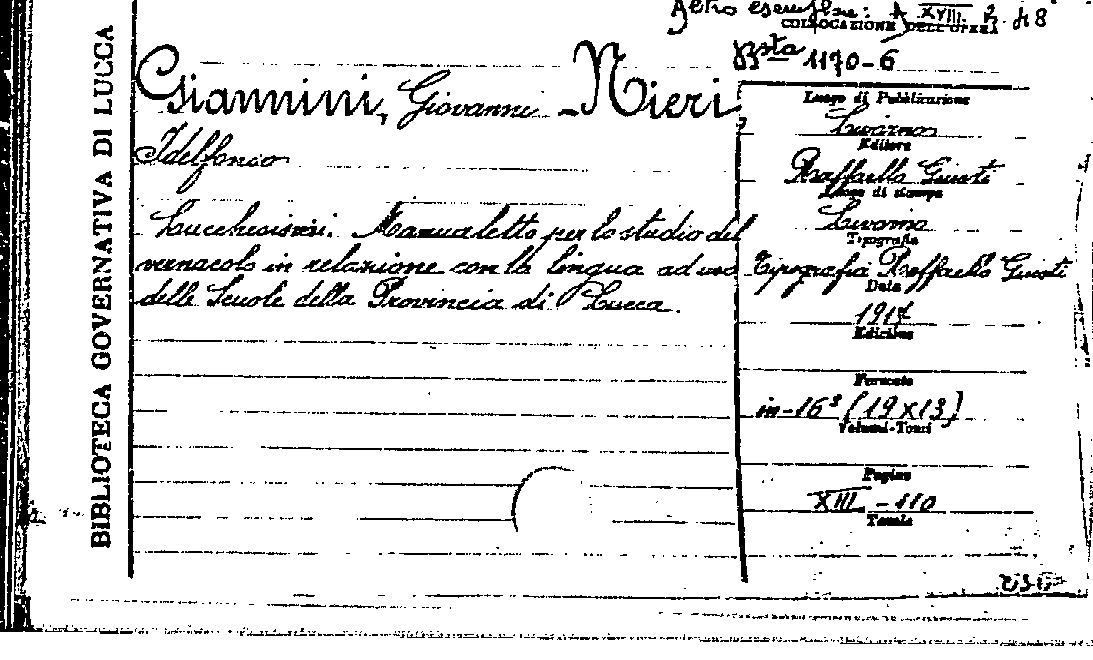 BIBLIOTECA GOVERNATIVA DI LUCCA
Altro esemplare: XVIII. 2.
COLLOCAZIONE DELL'OPERA
Bsta 1170-6
Giannini, Giovanni - Nieri,
Idelfonso
Lucchesismi. Manualetto per lo studio del
vernacolo in relazione con la lingua ad uso
delle Scuole della Provincia di Lucca.
Luogo di Pubblicazione
Livorno
Editore
Raffaello Giusti
Luogo di stampa
Livorno
Tipografia
Tipografia Raffaello Giusti
Data
Edizione
Formato
in-16° (19x13)
Volumi-Tomi
Pagine
XIII - 110
Tavole